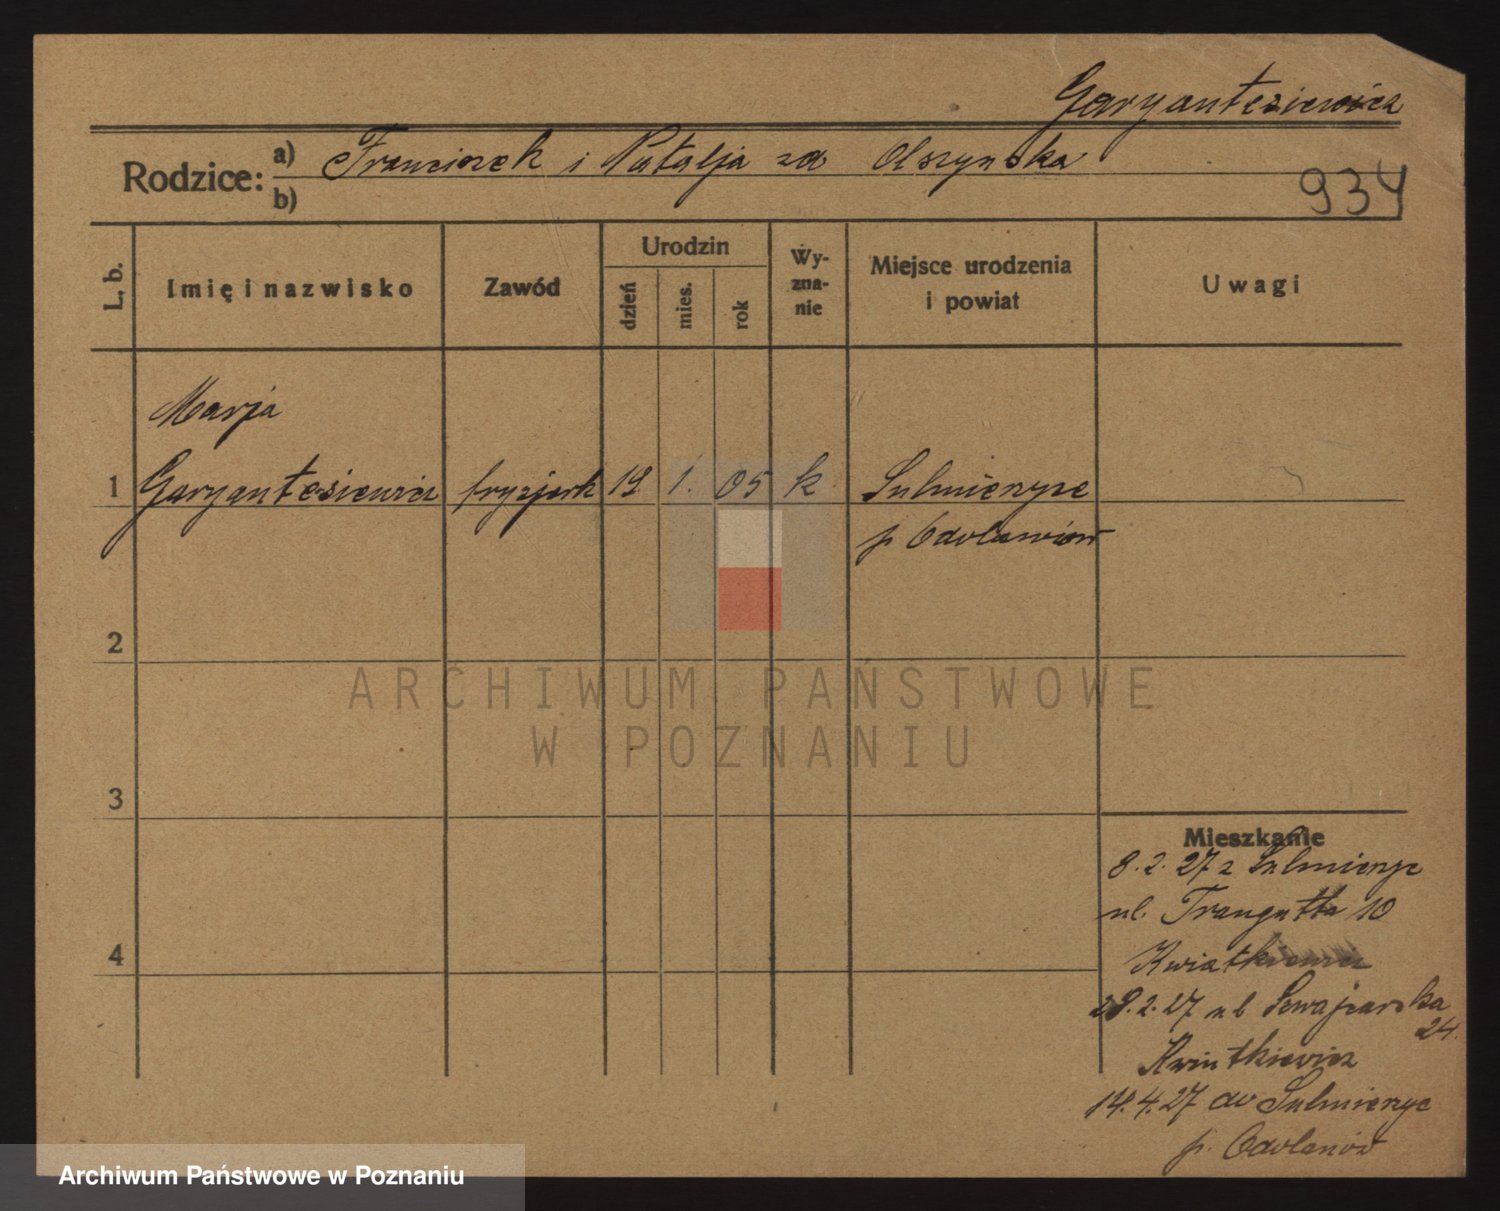 Garyantesiewicz
Rodzice: a) Franciszek i Natalja zd Olszynska
b)
934
L. b.
Imię i nazwisko
Zawód
Urodzin
dzień
mies.
rok
Wy-
zna-
nie
Miejsce urodzenia
i powiat
Uwagi
Marja
1 Garyantesiewicz fryzjerk 19 1. 05 k Sulmierzyce
p Odolanów
2
ARCHIWUM PAŃSTWOWE
W POZNANIU
3
Mieszkanie
8. 2. 27 z Sulmierzyc
ul. Traugutta 10
4
Kwiatkiewicz
28. 2. 27 ul Szwajcarska
24.
Kwiatkiewicz
14. 4. 27 do Sulmierzyc
p. Odolanów
Archiwum Państwowe w Poznaniu